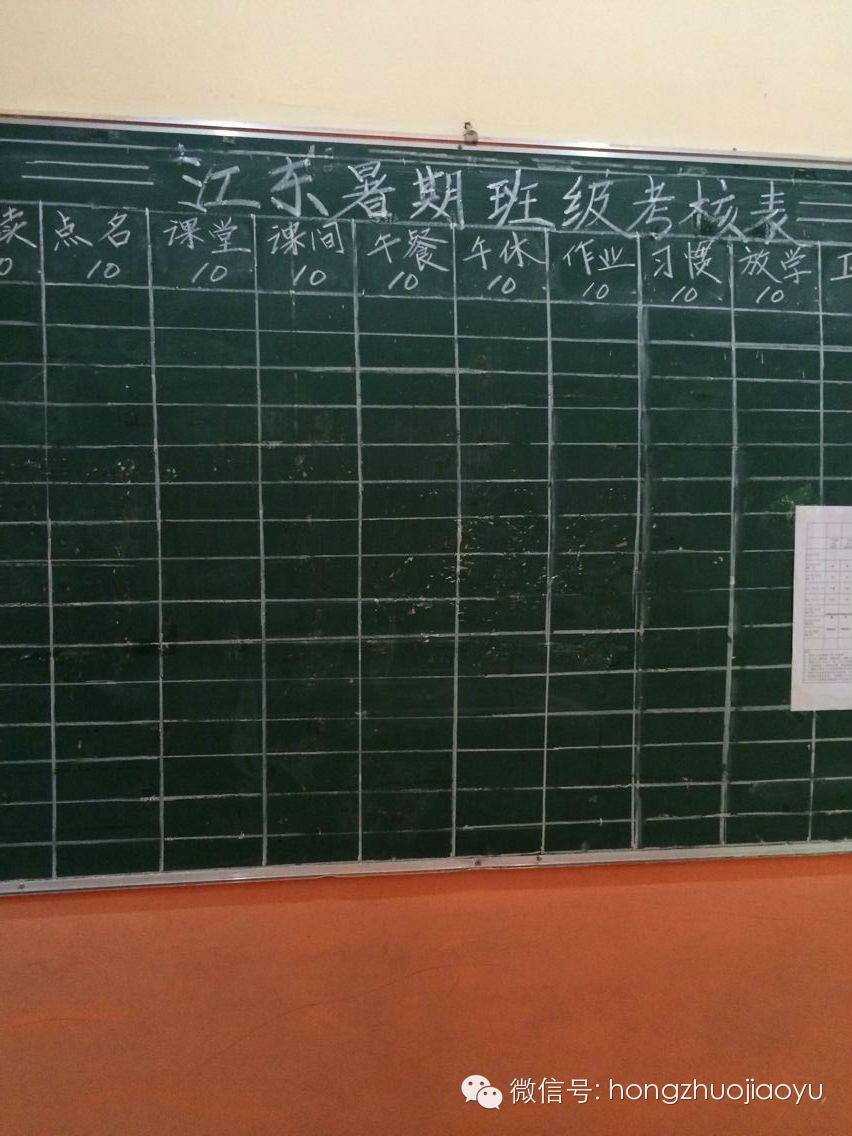 江东暑期班级考核表
点名 课堂 课间 午餐 午休 作业 习惯 放学
10 10 10 10 10 10 10 10
微信号: hongzhuojiaoyu